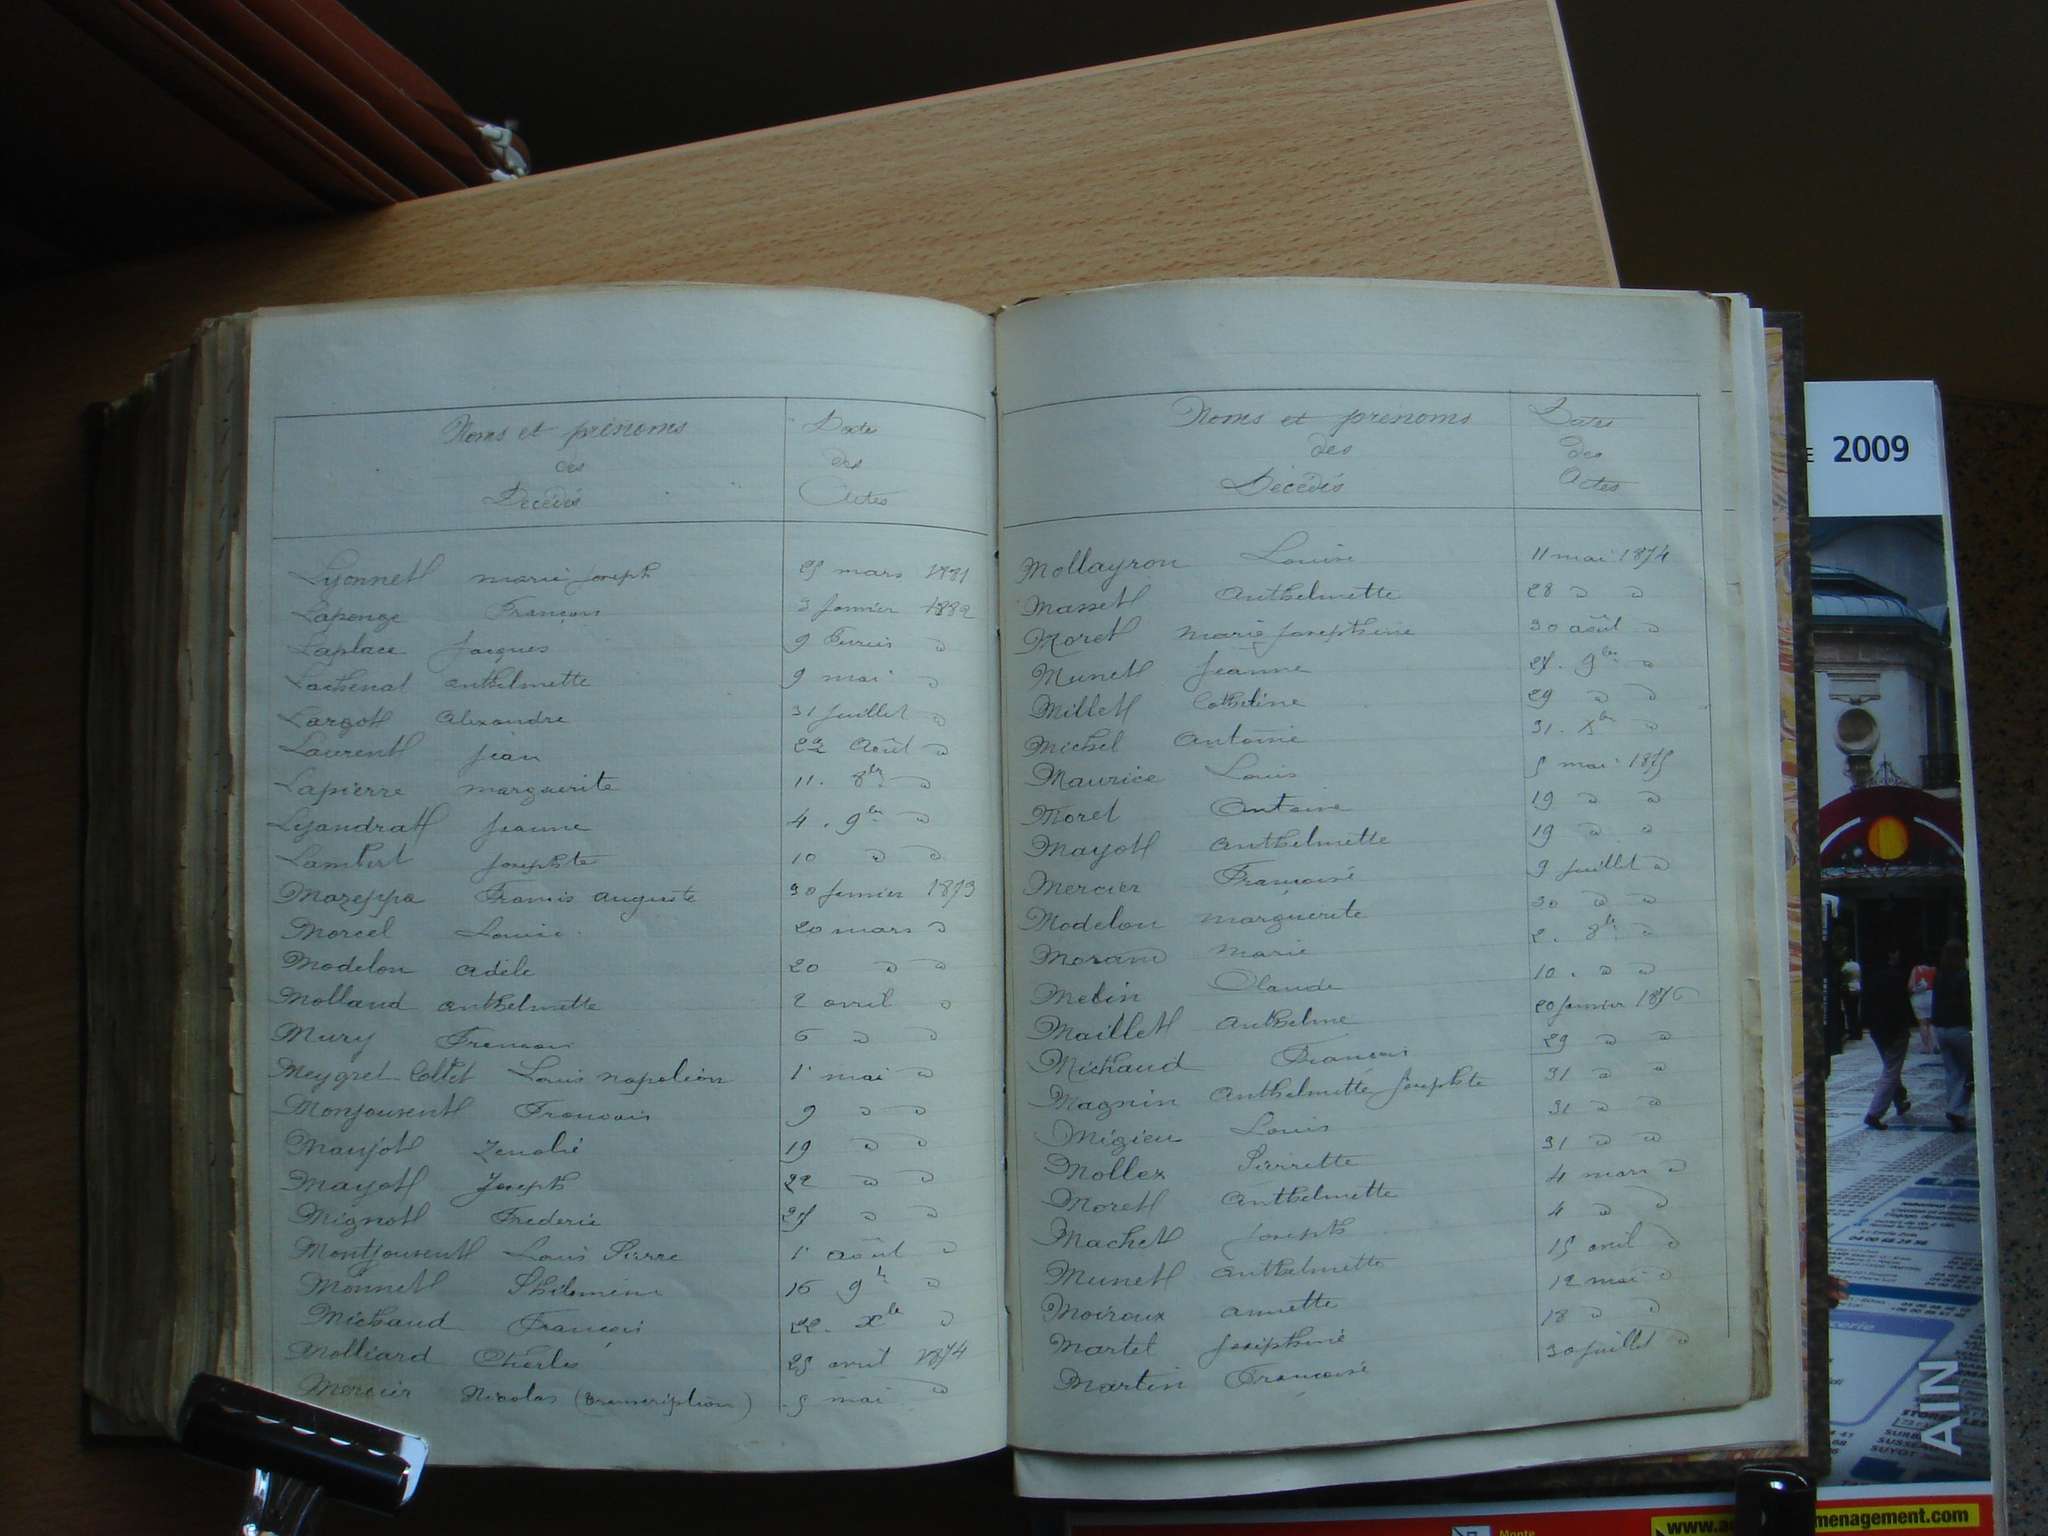 Noms et prénoms
des
Décédés
Dates
des
Actes
Lyonnet marie Joseph 25 mars 1881
Laponge François 3 janvier 1882
Laplace Jacques 9 Février "
Lachenal anthelmette 9 mai "
Largot Alexandre 31 juillet "
Laurent jean 22 Août "
Lapierre marguerite 11. 8bre "
Lyandrat Jeanne 4. 9bre "
Lambert Josephte 10 " "
Mazeppa Francis auguste 30 janvier 1873
Morcel Louise 20 mars "
Modelon adèle 20 " "
Molland anthelmette 2 avril "
Mury Francois 6 " "
Meygret Collet Louis napoléon 1er mai "
Monjouvent Francois 9 " "
Maujot 19 " "
Mayot Joseph 22 " "
Mignot Frederic 25 " "
Montjouvent Louis Pierre 1er août "
Monnet Philomène 16 9bre "
Michaud François 22. Xbre "
Molliard Charles 25 avril 1874
Mercier Nicolas (transcription) 5 mai "
Noms et prénoms
des
Décédés
Dates
des
Actes
Mollayron Louise 11 mai 1874
Masset Anthelmette 28 " "
Moret Marie Josephine 30 août "
Munet Jeanne 25. 9bre "
Millet Catherine 29 " "
Michel Antoine 31. Xbre "
Maurice Louis 5 mai 1875
Moret Antoine 19 " "
Mayot Anthelmette 19 " "
Mercier Françoise 9 juillet "
Modelon marguerite 30 " "
Morand Marie 2. 8bre "
Melin Claude 10. " "
Maillet Anthelme 20 janvier 1876
Michaud François 29 " "
Magnin Anthelmette Josephte 31 " "
Migieu Louis 31 " "
Mollex Pierrette 31 " "
Moret Anthelmette 4 mars "
Machet Joseph 4 " "
Munet anthelmette 15 avril "
Moiroux annette 12 mai "
Martel Joséphine 18 " "
Martin Françoise 30 juillet "
E 2009
AIN
menagement.com